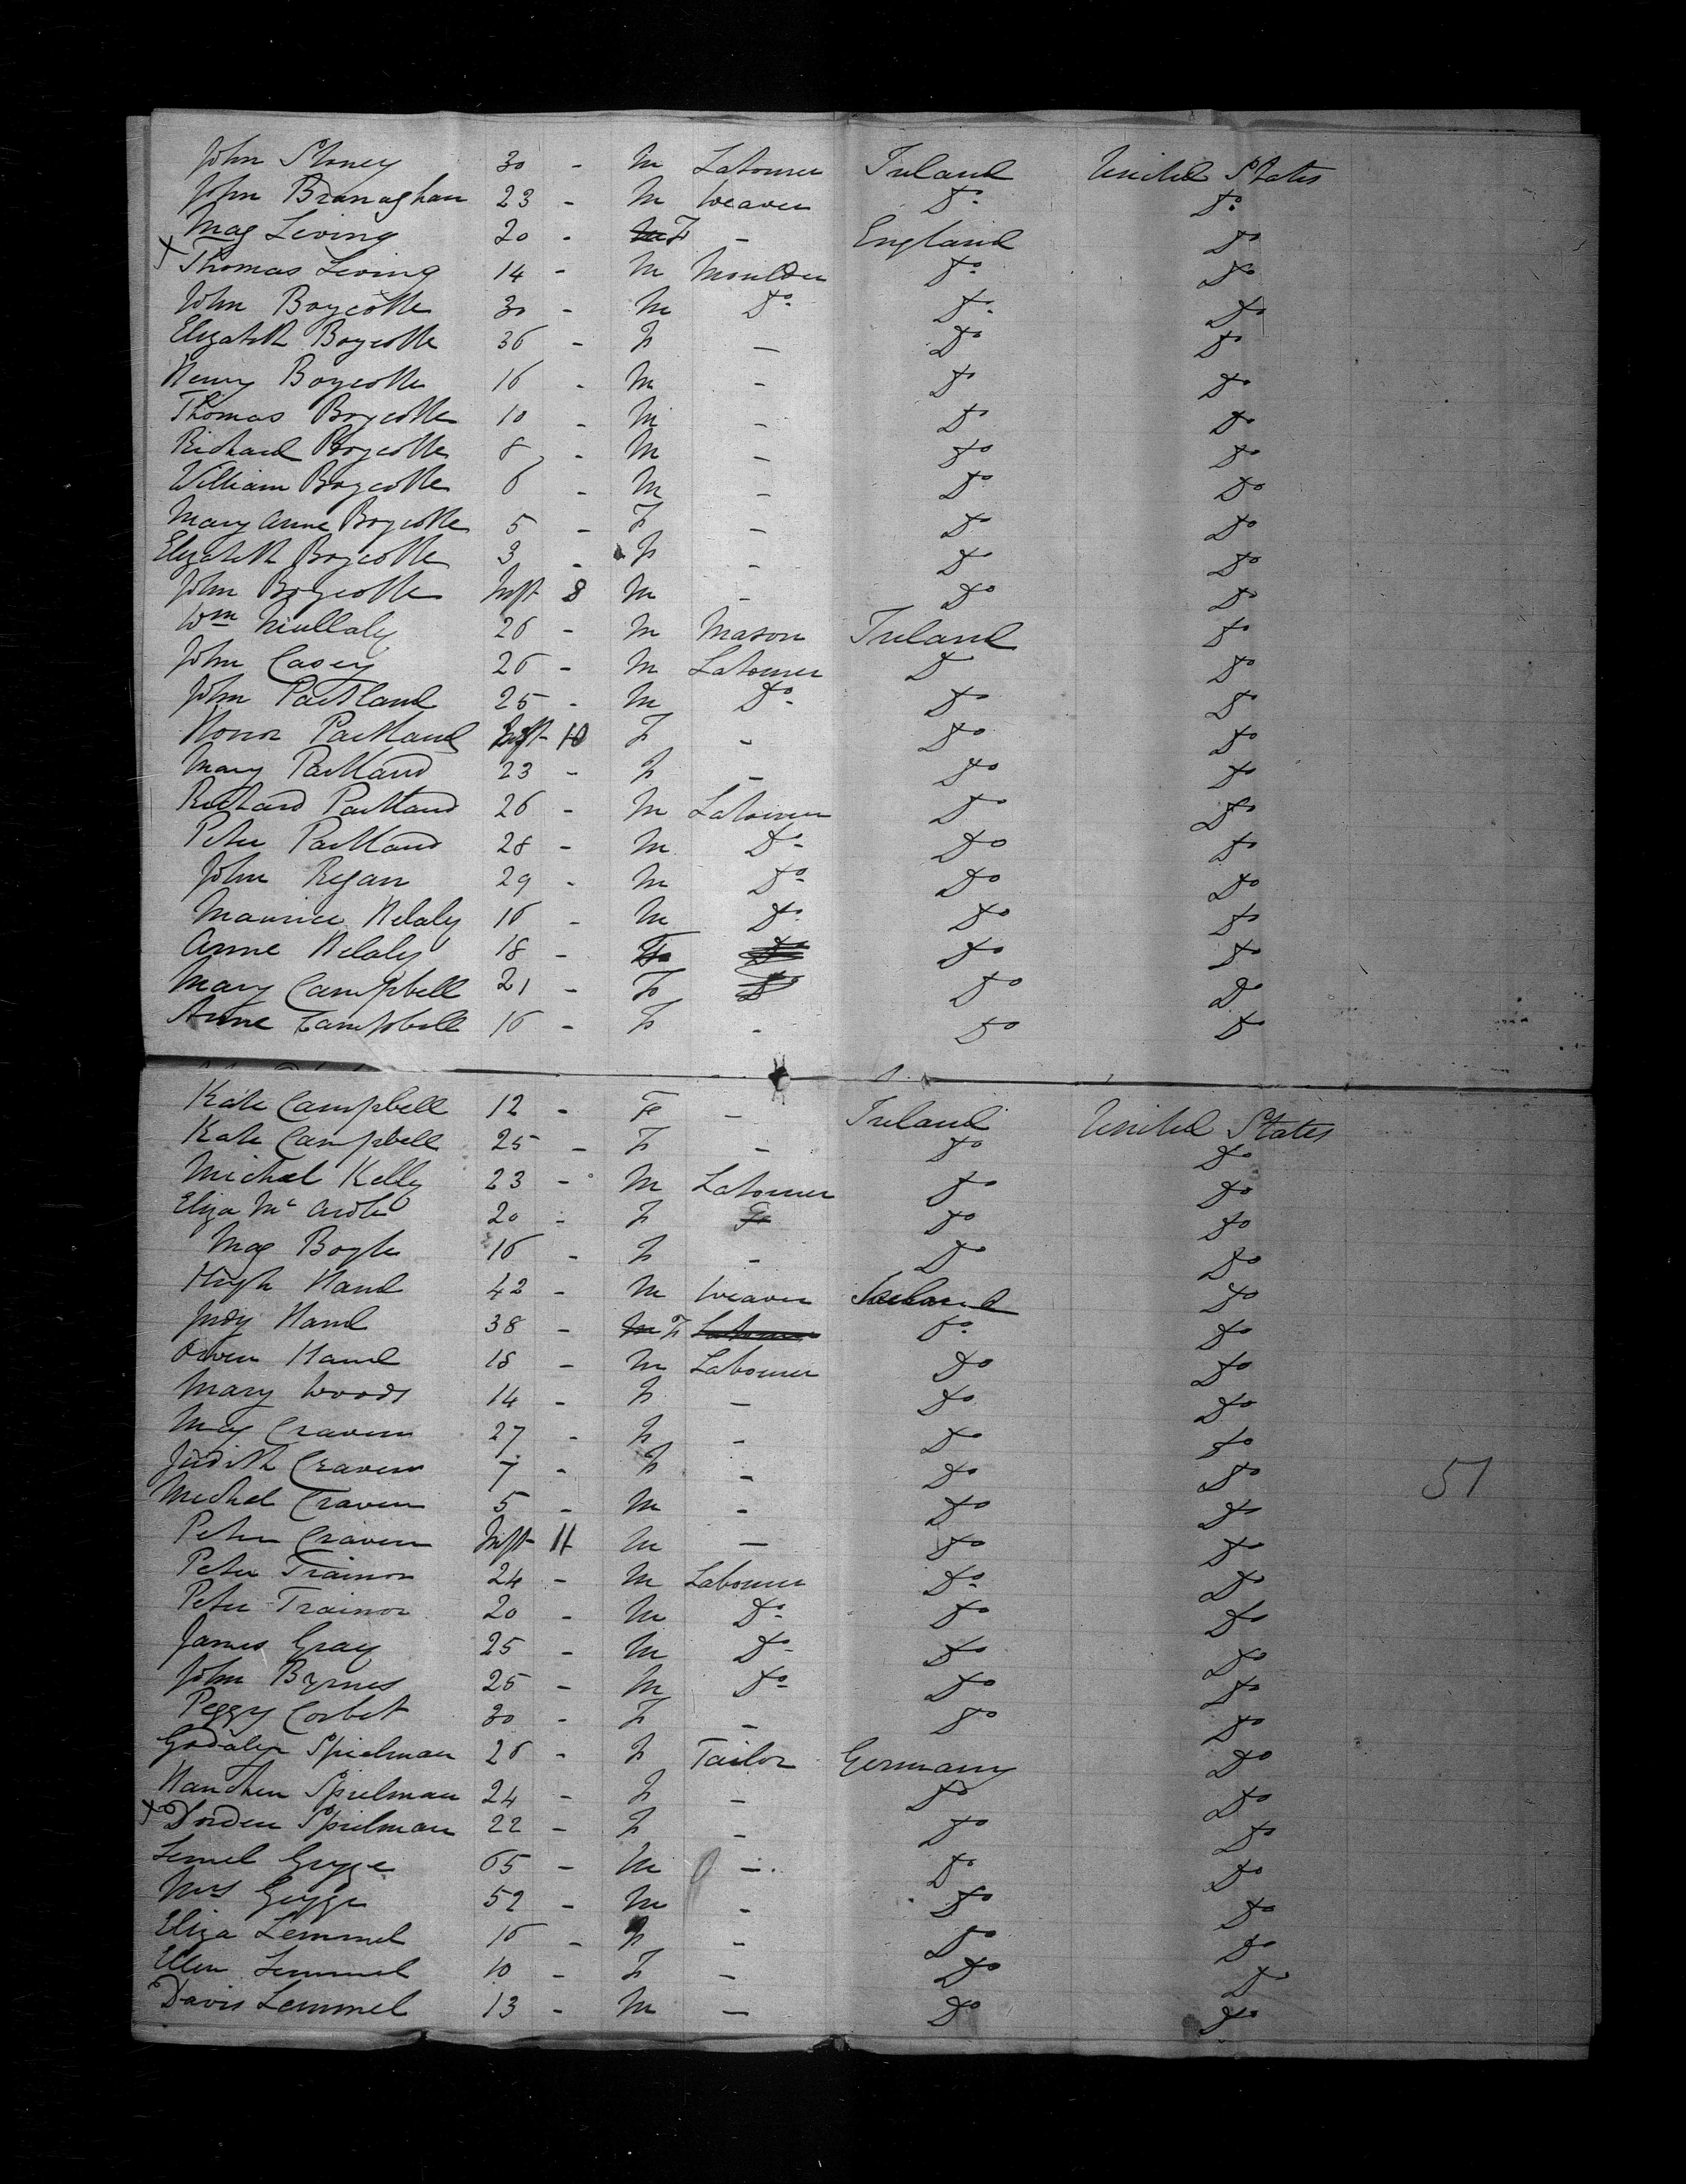 John Stoney 30 - M Labourer Ireland United States
John Branaghan 23 - M Weaver Do Do
Mag Living 20 - F - England Do
x Thomas Living 14 - M Moulder Do Do
John Boycotte 30 - M Do Do Do
Elizabeth Boycotte 36 - F - Do Do
Henry Boycotte 16 - M - Do Do
Thomas Boycotte 10 - M - Do Do
Richard Boycotte 8 - M - Do Do
William Boycotte 6 - M - Do Do
Mary Anne Boycotte 5 - F - Do Do
Elizabeth Boycotte 3 - F - Do Do
John Boycotte Inft 8 M - Do Do
Wm Mullaly 26 - M Mason Ireland Do
John Casey 26 - M Labourer Do Do
John Partland 25 - M Do Do Do
Honor Partland Inft 10 F - Do Do
Mary Partland 23 - F - Do Do
Richard Partland 26 - M Labourer Do Do
Peter Partland 28 - M Do Do Do
John Regan 29 - M Do Do Do
Maurice Helaly 16 - M Do Do Do
Anne Helaly 18 - F Do Do Do
Mary Campbell 21 - F Do Do Do
Anne Campbell 16 - F - Do Do
Kate Campbell 12 - F - Ireland United States
Kate Campbell 25 - F - Do Do
Michael Kelly 23 - M Labourer Do Do
Eliza Mc Ardle 20 - F F Do Do
Mag Boyle 16 - F - Do Do
Hugh Hand 42 - M Weaver Ireland Do
Judy Hand 38 - M F Labourer Do Do
Owen Hand 18 - M Labourer Do Do
Mary Woods 14 - F - Do Do
May Craven 27 - F - Do Do
Judith Craven 7 - F - Do Do
Michel Craven 5 - M - Do Do
51
Peter Craven Inft 11 M - Do Do
Peter Trainor 24 - M Labourer Do Do
Peter Trainor 20 - M Do Do Do
James Gray 25 - M Do Do Do
John Byrnes 25 - M Do Do Do
Peggy Corbet 30 - F - Do Do
Spielman 26 - F Tailor Germany Do
Hanchen Spielman 24 - F - Do Do
x Dorden Spielman 22 - F - Do Do
Lemel Gugge 65 - M - Do Do
Mrs Gugge 52 - M - Do Do
Eliza Lemmel 16 - F - Do Do
Ellen Lemmel 10 - F - Do Do
Davis Lemmel 13 - M - Do Do